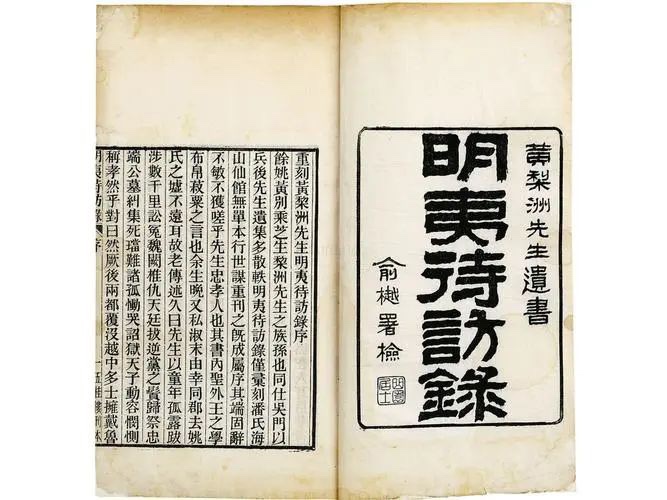 黃棃洲先生遺書
明夷待訪錄
俞樾署檢
曲園居士
重刻黃棃洲先生明夷待訪錄序
餘姚黃別乘芝生棃洲先生之族孫也同仕吳門以
兵後先生遺集多散軼明夷待訪錄僅彙刻潘氏海
山仙館無單本行世謀重刊之旣成屬序其端固辭
不敏不獲嗟乎先生忠孝人也其書內聖外王之學
布帛菽粟之言也余生晚又私淑末由幸同郡去姚
氏之墟不遠耳故老傳述久曰先生以童年孤露跋
涉數千里訟冤魏闕椎仇天廷拔逆黨之鬢歸祭忠
端公墓糾集死璫難諸孤慟哭詔獄天子動容憫惻
稱孝然乎對曰然厥後兩都覆沒越中多士擁戴魯
明夷待訪錄 序 一